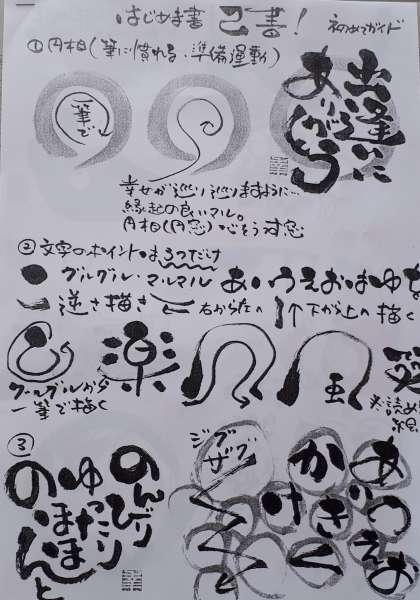 はじめま書 己書! 初めてガイド
①円相(筆に慣れる・準備運動)
一筆で
出逢いに
ありがとう
幸せが巡り巡りますように…
縁起の良いマル。
円相(円窓) 心そう対窓
②文字のポイントは3つだけ
グルグル・マルマル あいうえおはゆ
逆さ描き 右から左へ 下から上へ描く
楽
グルグルから
一筆で描く
③
のんびり
ゆったり
のほほんと
ジグザグ
あいうえお
かきくけ